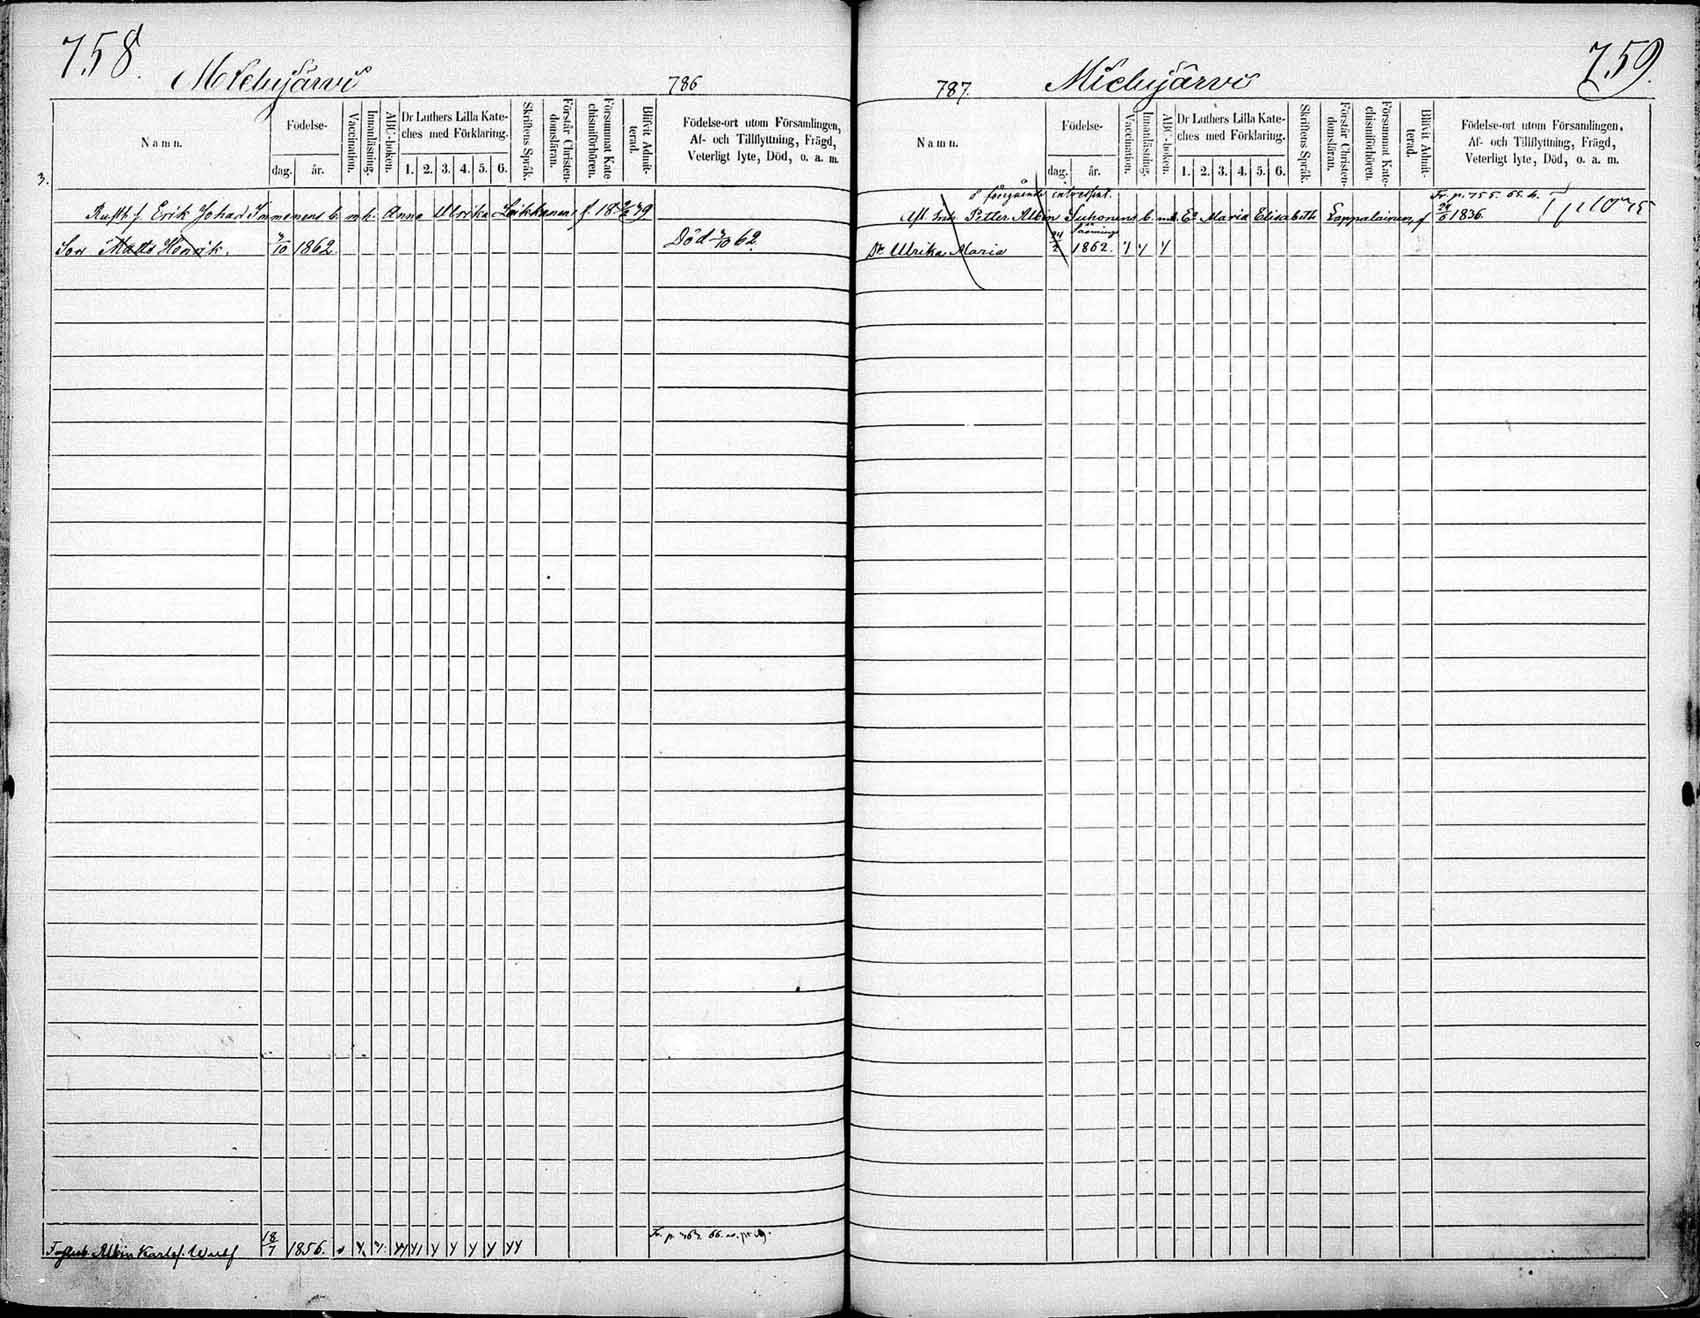 758.
Michijärvi
786
3.
Namn.
Födelse-
dag. år.
Vaccination.
Innanläsning.
ABC-boken.
Dr Luthers Lilla Kate-
ches med Förklaring.
1. 2. 3. 4. 5. 6.
Skriftens Språk.
Förstår Christen-
domsläran.
Försummat Kate
chismiförhören.
Blifvit Admit-
terad.
Födelse-ort utom Församlingen,
Af- och Tillflyttning, Frägd,
Veterligt lyte, Död, o. a. m.
Erik Johan Immonens b. m h. Anna Ulrika f. 18
Son Matts Henrik. 1862. Död 62.
Albin 18/7 1856.
787.
Michijärvi
759.
Namn.
Födelse-
dag. år.
Vaccination.
Innanläsning.
ABC-boken.
Dr Luthers Lilla Kate-
ches med Förklaring.
1. 2. 3. 4. 5. 6.
Skriftens Språk.
Förstår Christen-
domsläran.
Försummat Kate-
chismiförhören.
Blifvit Admit-
terad.
Födelse-ort utom Församlingen,
Af- och Tillflyttning, Frägd,
Veterligt lyte, Död, o. a. m.
Fr. p. 755.
Petter Albin Suhonens b. m. h. Maria Elisabeth Lappalainen f 1836.
Dr Ulrika Maria 1862.